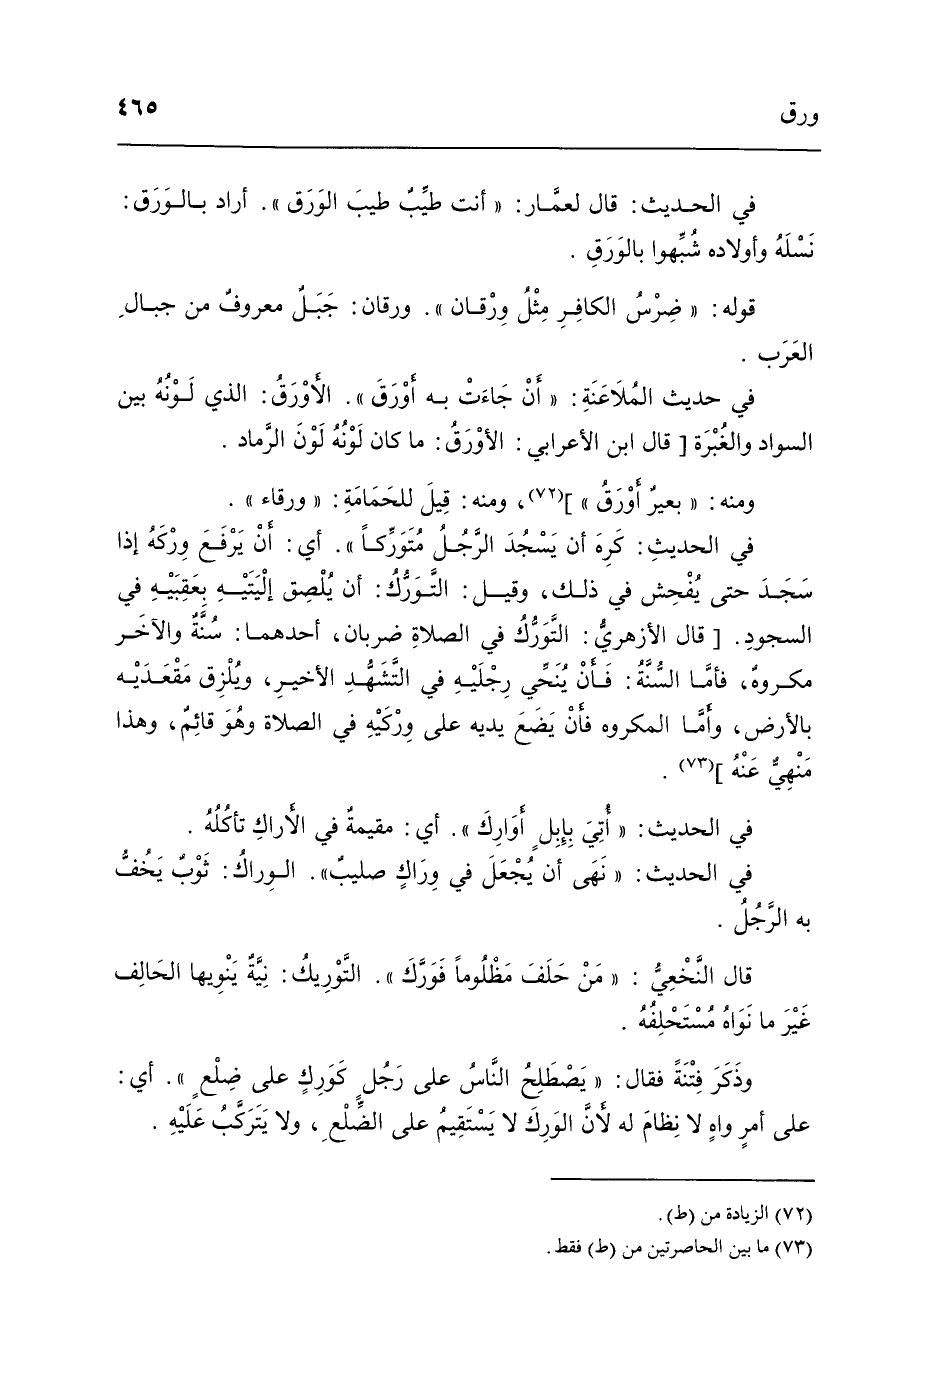 ورق ٤٦٥
في الحديث: قال لعمَّار: « أنت طيِّبٌ طيبَ الوَرَق ». أراد بالوَرَق:
نَسْلَهُ وأولاده شُبِّهوا بالوَرَقِ .
قوله: « ضِرْسُ الكافِرِ مِثْلُ وِرْقان ». ورقان: جَبَلٌ معروفٌ من جبالِ
العَرَب .
في حديث المُلَاعَنَةِ: « أَنْ جَاءَتْ به أَوْرَقَ ». الأَوْرَقُ: الذي لَوْنُهُ بين
السواد والغُبْرَة [ قال ابن الأعرابي: الأوْرَقُ: ما كان لَوْنُهُ لَوْنَ الرَّماد .
ومنه: « بعيرٌ أَوْرَقُ » ](٧٢)، ومنه: قِيلَ للحَمَامَةِ: « ورقاء » .
في الحديثِ: كَرِهَ أن يَسْجُدَ الرَّجُلُ مُتَوَرِّكاً ». أي: أَنْ يَرْفَعَ وِرْكَهُ إذا
سَجَدَ حتى يُفْحِش في ذلك، وقيل: التَّوَرُّكُ: أن يُلْصِق إلْيَتَيْهِ بِعَقِبَيْهِ في
السجودِ. [ قال الأزهريُّ: التَّوَرُّكُ في الصلاةِ ضربان، أحدهما: سُنَّةٌ والآخَر
مكروهٌ، فأمَّا السُّنَّةُ: فَأَنْ يُنَحِّي رِجْلَيْهِ في التَّشَهُّدِ الأخيرِ، ويُلْزِق مَقْعَدَيْه
بالأرض، وأَمَّا المكروه فأَنْ يَضَعَ يديه على وِرْكَيْهِ في الصلاة وهُوَ قائِمٌ، وهذا
مَنْهِيٌّ عَنْهُ ](٧٣) .
في الحديث: « أُتِيَ بِإِبِلٍ أَوَارِكَ ». أي: مقيمةٌ في الأراكِ تأكُلُهُ .
في الحديث: « نَهَى أن يُجْعَلَ في وِرَاكٍ صليبٌ». الوِراكُ: ثَوْبٌ يَحُفُّ
به الرَّجُلُ .
قال النَّخْعِيُّ : « مَنْ حَلَفَ مَظْلُوماً فَوَرَّكَ ». التَّوْرِيكُ: نِيَّةٌ يَنْوِيها الحَالِف
غَيْرَ ما نَوَاهُ مُسْتَحْلِفُهُ .
وذَكَرَ فِتْنَةً فقال: « يَصْطَلِحُ النَّاسُ على رَجُلٍ كَوَرِكٍ على ضِلْعٍ ». أي:
على أمرٍ واهٍ لا نِظامَ له لأَنَّ الوَرِكَ لا يَسْتَقِيمُ على الضِّلْعِ، ولا يَتَرَكَّبُ عَلَيْهِ .
(٧٢) الزيادة من (ط).
(٧٣) ما بين الحاصرتين من (ط) فقط.